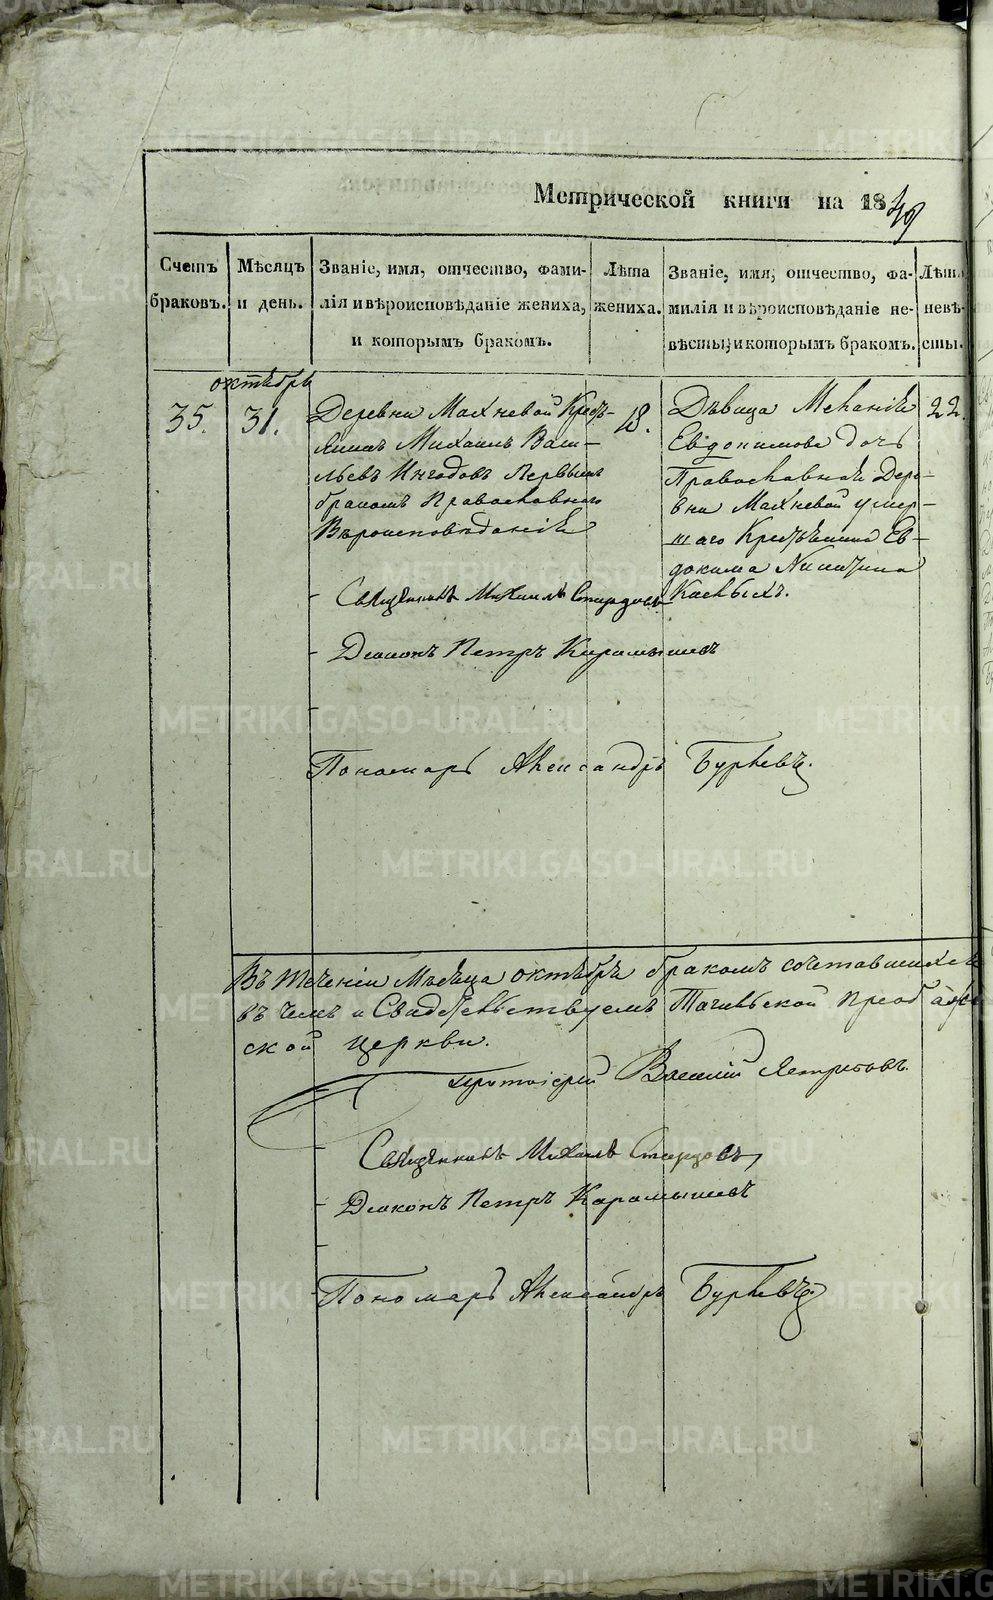 Метрической книги на 1849
Счетъ браковъ.
Мѣсяцъ и день.
Званіе, имя, отчество, фами-
лія и вѣроисповѣданіе жениха,
и которымъ бракомъ.
Лѣта жениха.
Званіе, имя, отчество, фа-
милія и вѣроисповѣданіе не-
вѣсты, и которымъ бракомъ.
Лѣта невѣ-
сты.
октября
35. 31.
Деревни Махневой Кресть-
янинъ Михаилъ Васи-
льевъ первымъ
бракомъ Православнаго
Вѣроисповѣданія
18.
Дѣвица Меланія
Евдокимова дочь
Православная Дере-
вни Махневой умер-
шаго Крестьянина Ев-
докима
22.
Священникъ Михаилъ
Діаконъ Петръ Карамышевъ
Пономарь Александръ
Въ теченіи Мѣсяца октября бракомъ сочетавшихся
въ чемъ и Свидѣтельствуемъ
ской церкви.
Протоіерей Василій
Священникъ Михаилъ
Діаконъ Петръ Карамышевъ
Пономарь Александръ
METRIKI.GASO-URAL.RU